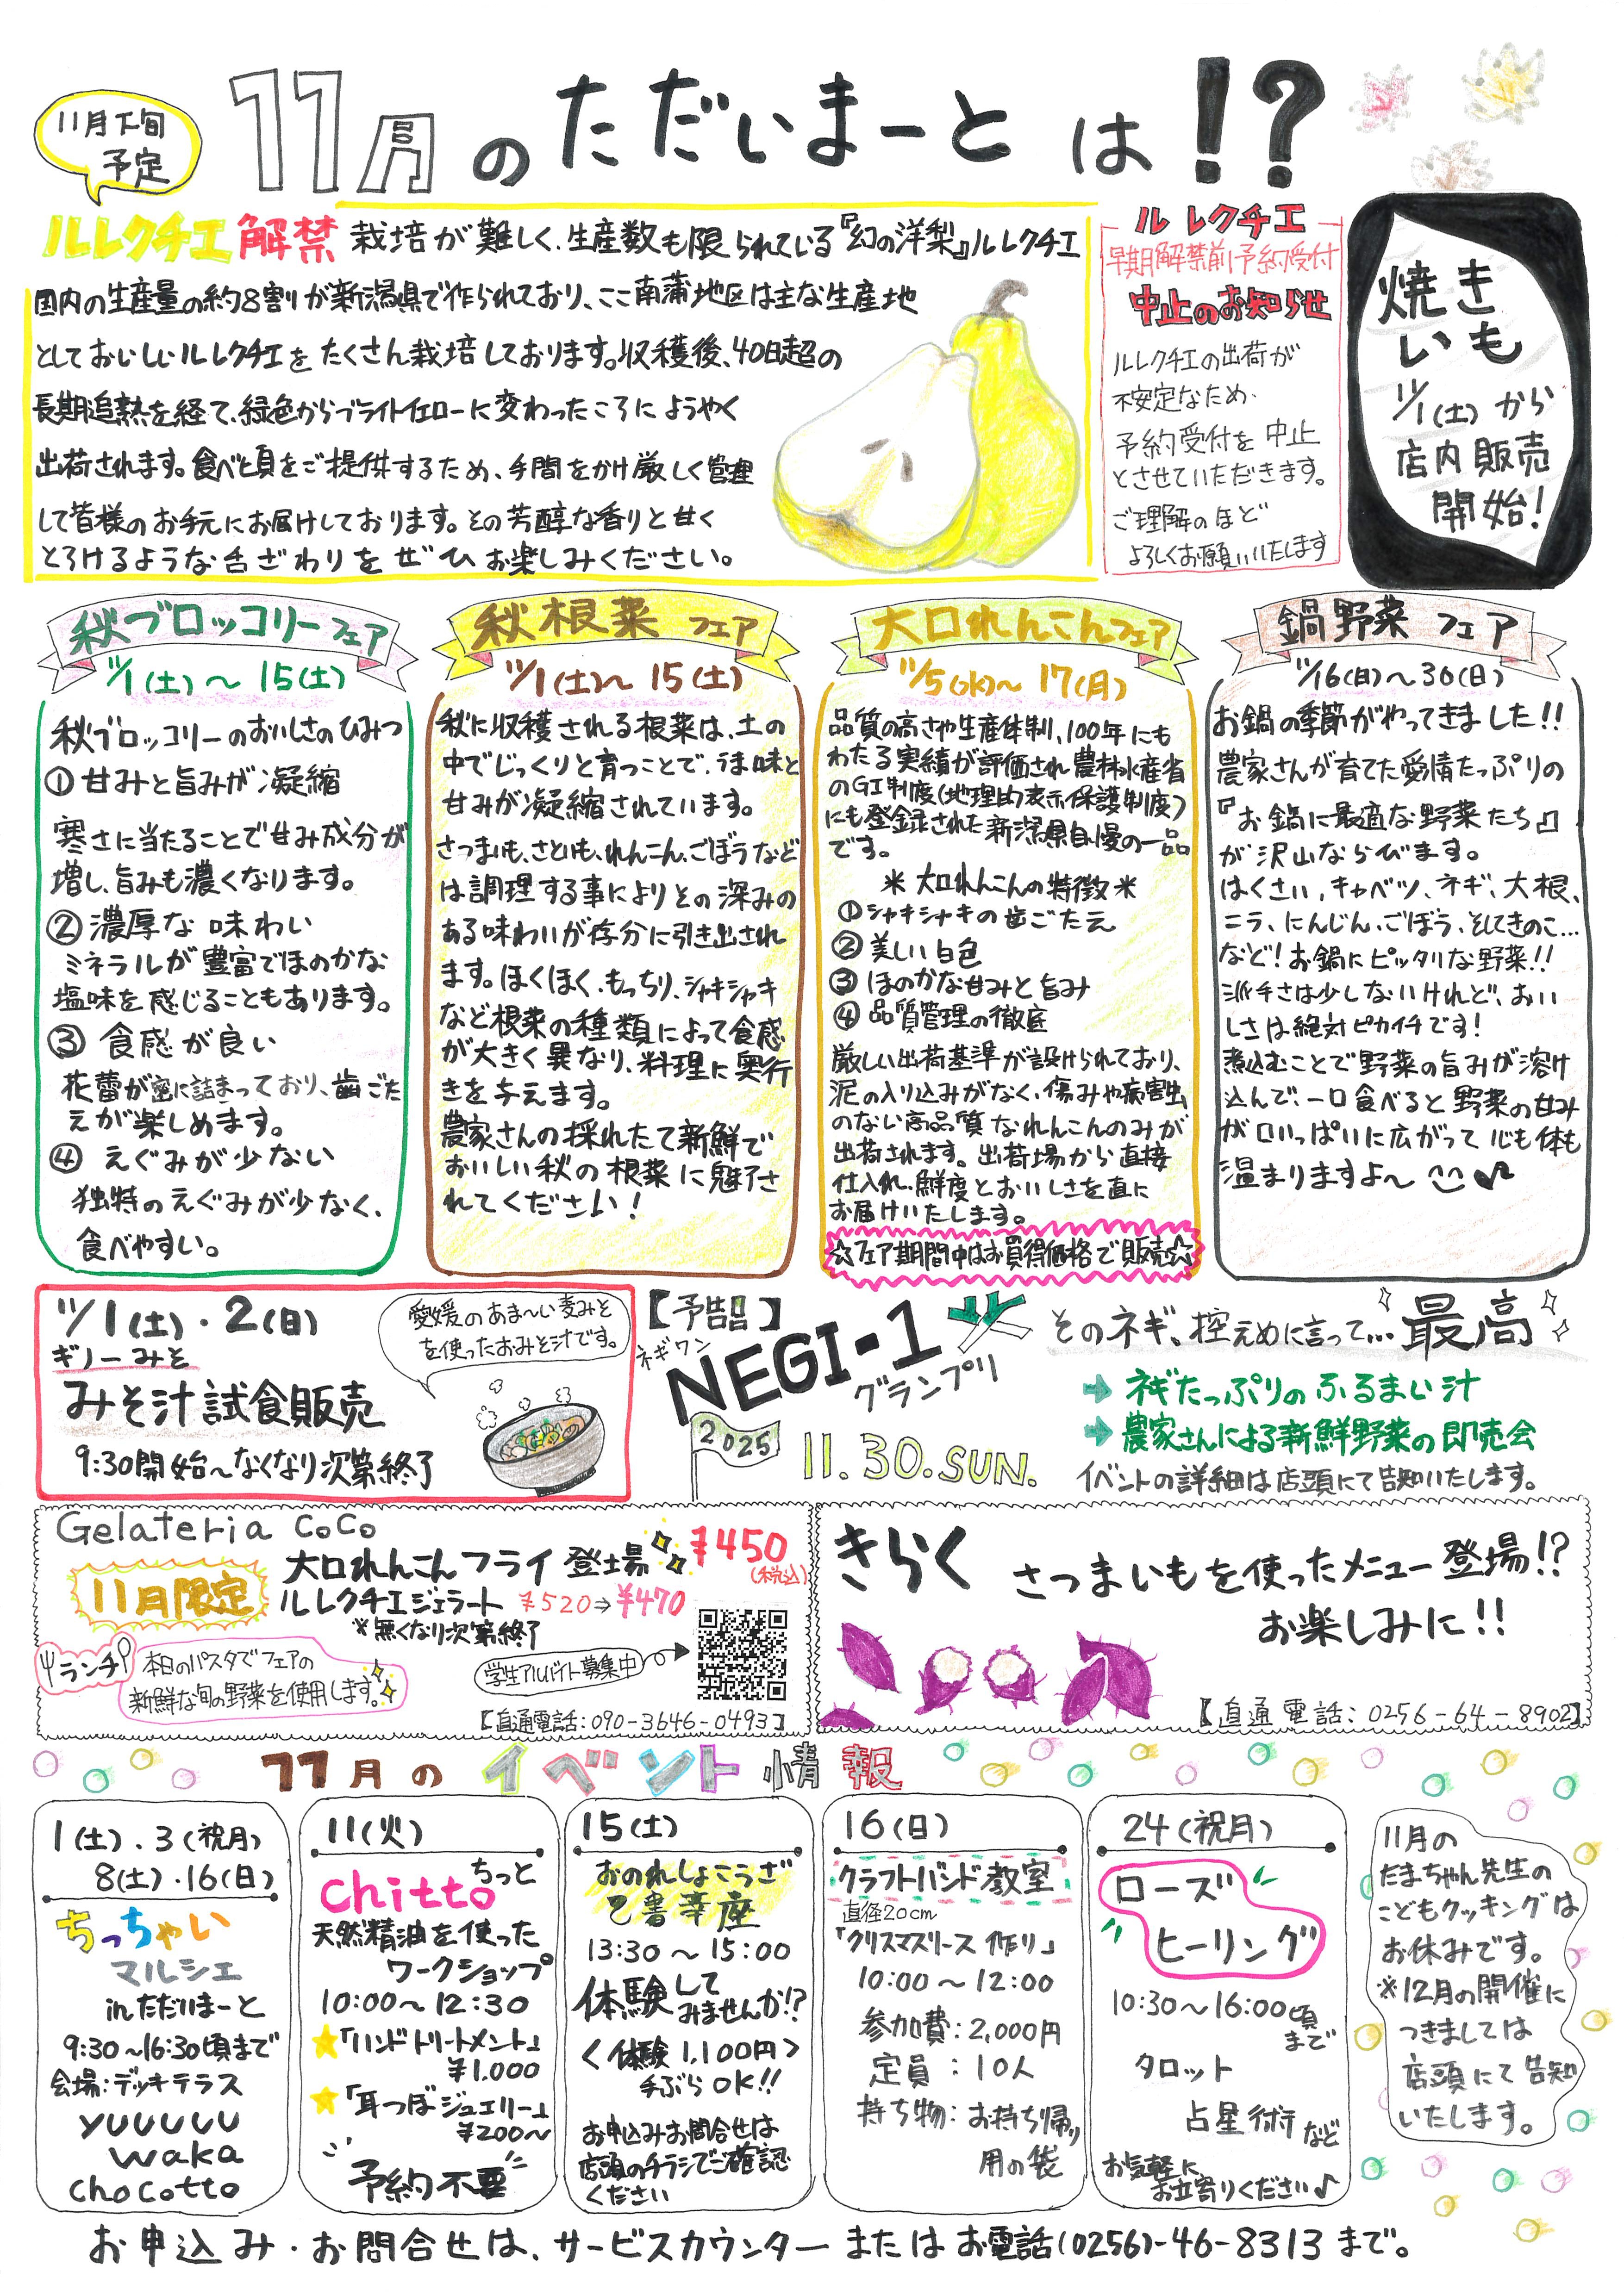 11月下旬
予定
11月のただいまーとは!?
ルレクチエ解禁 栽培が難しく、生産数も限られている『幻の洋梨』ルレクチエ
国内の生産量の約8割が新潟県で作られており、ここ南蒲地区は主な生産地
としておいしいルレクチエをたくさん栽培しております。収穫後、40日超の
長期追熟を経て、緑色からブライトイエローに変わったころにようやく
出荷されます。食べ頃をご提供するため、手間をかけ厳しく管理
して皆様のお手元にお届けしております。その芳醇な香りと甘く
とろけるような舌ざわりをぜひお楽しみください。
ルレクチエ
早期解禁前予約受付
中止のお知らせ
ルレクチエの出荷が
不安定なため、
予約受付を中止
とさせていただきます。
ご理解のほど
よろしくお願いいたします
焼き
いも
11/1(土)から
店内販売
開始!
秋ブロッコリーフェア
11/1(土)〜15(土)
秋ブロッコリーのおいしさのひみつ
①甘みと旨みが凝縮
寒さに当たることで甘み成分が
増し、旨みも濃くなります。
②濃厚な味わい
ミネラルが豊富でほのかな
塩味を感じることもあります。
③食感が良い
花蕾が密に詰まっており、歯ごた
えが楽しめます。
④えぐみが少ない
独特のえぐみが少なく、
食べやすい。
秋根菜フェア
11/1(土)〜15(土)
秋に収穫される根菜は、土の
中でじっくりと育つことで、うま味と
甘みが凝縮されています。
さつまいも、さといも、れんこん、ごぼうなど
は調理する事によりその深みの
ある味わいが存分に引き出され
ます。ほくほく、もっちり、シャキシャキ
など根菜の種類によって食感
が大きく異なり、料理に奥行
きを与えます。
農家さんの採れたて新鮮で
おいしい秋の根菜に魅了さ
れてください!
大口れんこんフェア
11/5(水)〜17(月)
品質の高さや生産体制、100年にも
わたる実績が評価され農林水産省
のGI制度(地理的表示保護制度)
にも登録された新潟県自慢の一品
です。
＊大口れんこんの特徴＊
①シャキシャキの歯ごたえ
②美しい白色
③ほのかな甘みと旨み
④品質管理の徹底
厳しい出荷基準が設けられており、
泥の入り込みがなく、傷みや病害虫
のない高品質なれんこんのみが
出荷されます。出荷場から直接
仕入れ、鮮度とおいしさを直に
お届けいたします。
☆フェア期間中はお買得価格で販売☆
鍋野菜フェア
11/16(日)〜30(日)
お鍋の季節がやってきました!!
農家さんが育てた愛情たっぷりの
『お鍋に最適な野菜たち』
が沢山ならびます。
はくさい、キャベツ、ネギ、大根、
ニラ、にんじん、ごぼう、そしてきのこ…
など!お鍋にピッタリな野菜!!
派手さは少しないけれど、おい
しさは絶対ピカイチです!
煮込むことで野菜の旨みが溶け
込んで、一口食べると野菜の甘み
が口いっぱいに広がって心も体も
温まりますよ〜
11/1(土)・2(日)
ギノーみそ
みそ汁試食販売
9:30開始〜なくなり次第終了
愛媛のあま〜い麦みそ
を使ったおみそ汁です。
【予告】
ネギワン
NEGI-1
グランプリ
2025
11.30.SUN.
そのネギ、控えめに言って…最高
➡ネギたっぷりのふるまい汁
➡農家さんによる新鮮野菜の即売会
イベントの詳細は店頭にて告知いたします。
Gelateria CoCo
11月限定
大口れんこんフライ登場 ¥450
(税込)
ルレクチエジェラート ¥520→¥470
※無くなり次第終了
ランチ
本日のパスタでフェアの
新鮮な旬の野菜を使用します。
学生アルバイト募集中
【直通電話:090-3646-0493】
きらく
さつまいもを使ったメニュー登場!?
お楽しみに!!
【直通電話:0256-64-8902】
11月のイベント情報
1(土)・3(祝月)
8(土)・16(日)
ちっちゃい
マルシェ
inただいまーと
9:30〜16:30頃まで
会場:デッキテラス
yuuuuu
waka
chocotto
11(火)
ちっと
chitto
天然精油を使った
ワークショップ
10:00〜12:30
★「ハンドトリートメント」
¥1.000
★「耳つぼジュエリー」
¥200〜
予約不要
15(土)
おのれしょこうざ
己書幸座
13:30〜15:00
体験して
みませんか!?
〈体験1,100円〉
手ぶらOK!!
お申込みお問合せは
店頭のチラシでご確認
ください
16(日)
クラフトバンド教室
直径20cm
「クリスマスリース作り」
10:00〜12:00
参加費:2,000円
定員:10人
持ち物:お持ち帰り
用の袋
24(祝月)
ローズ
ヒーリング
10:30〜16:00頃
まで
タロット
占星術など
お気軽に
お立寄りください♪
11月の
たまちゃん先生の
こどもクッキングは
お休みです。
※12月の開催に
つきましては
店頭にて告知
いたします。
お申込み・お問合せは、サービスカウンターまたはお電話(0256)-46-8313まで。